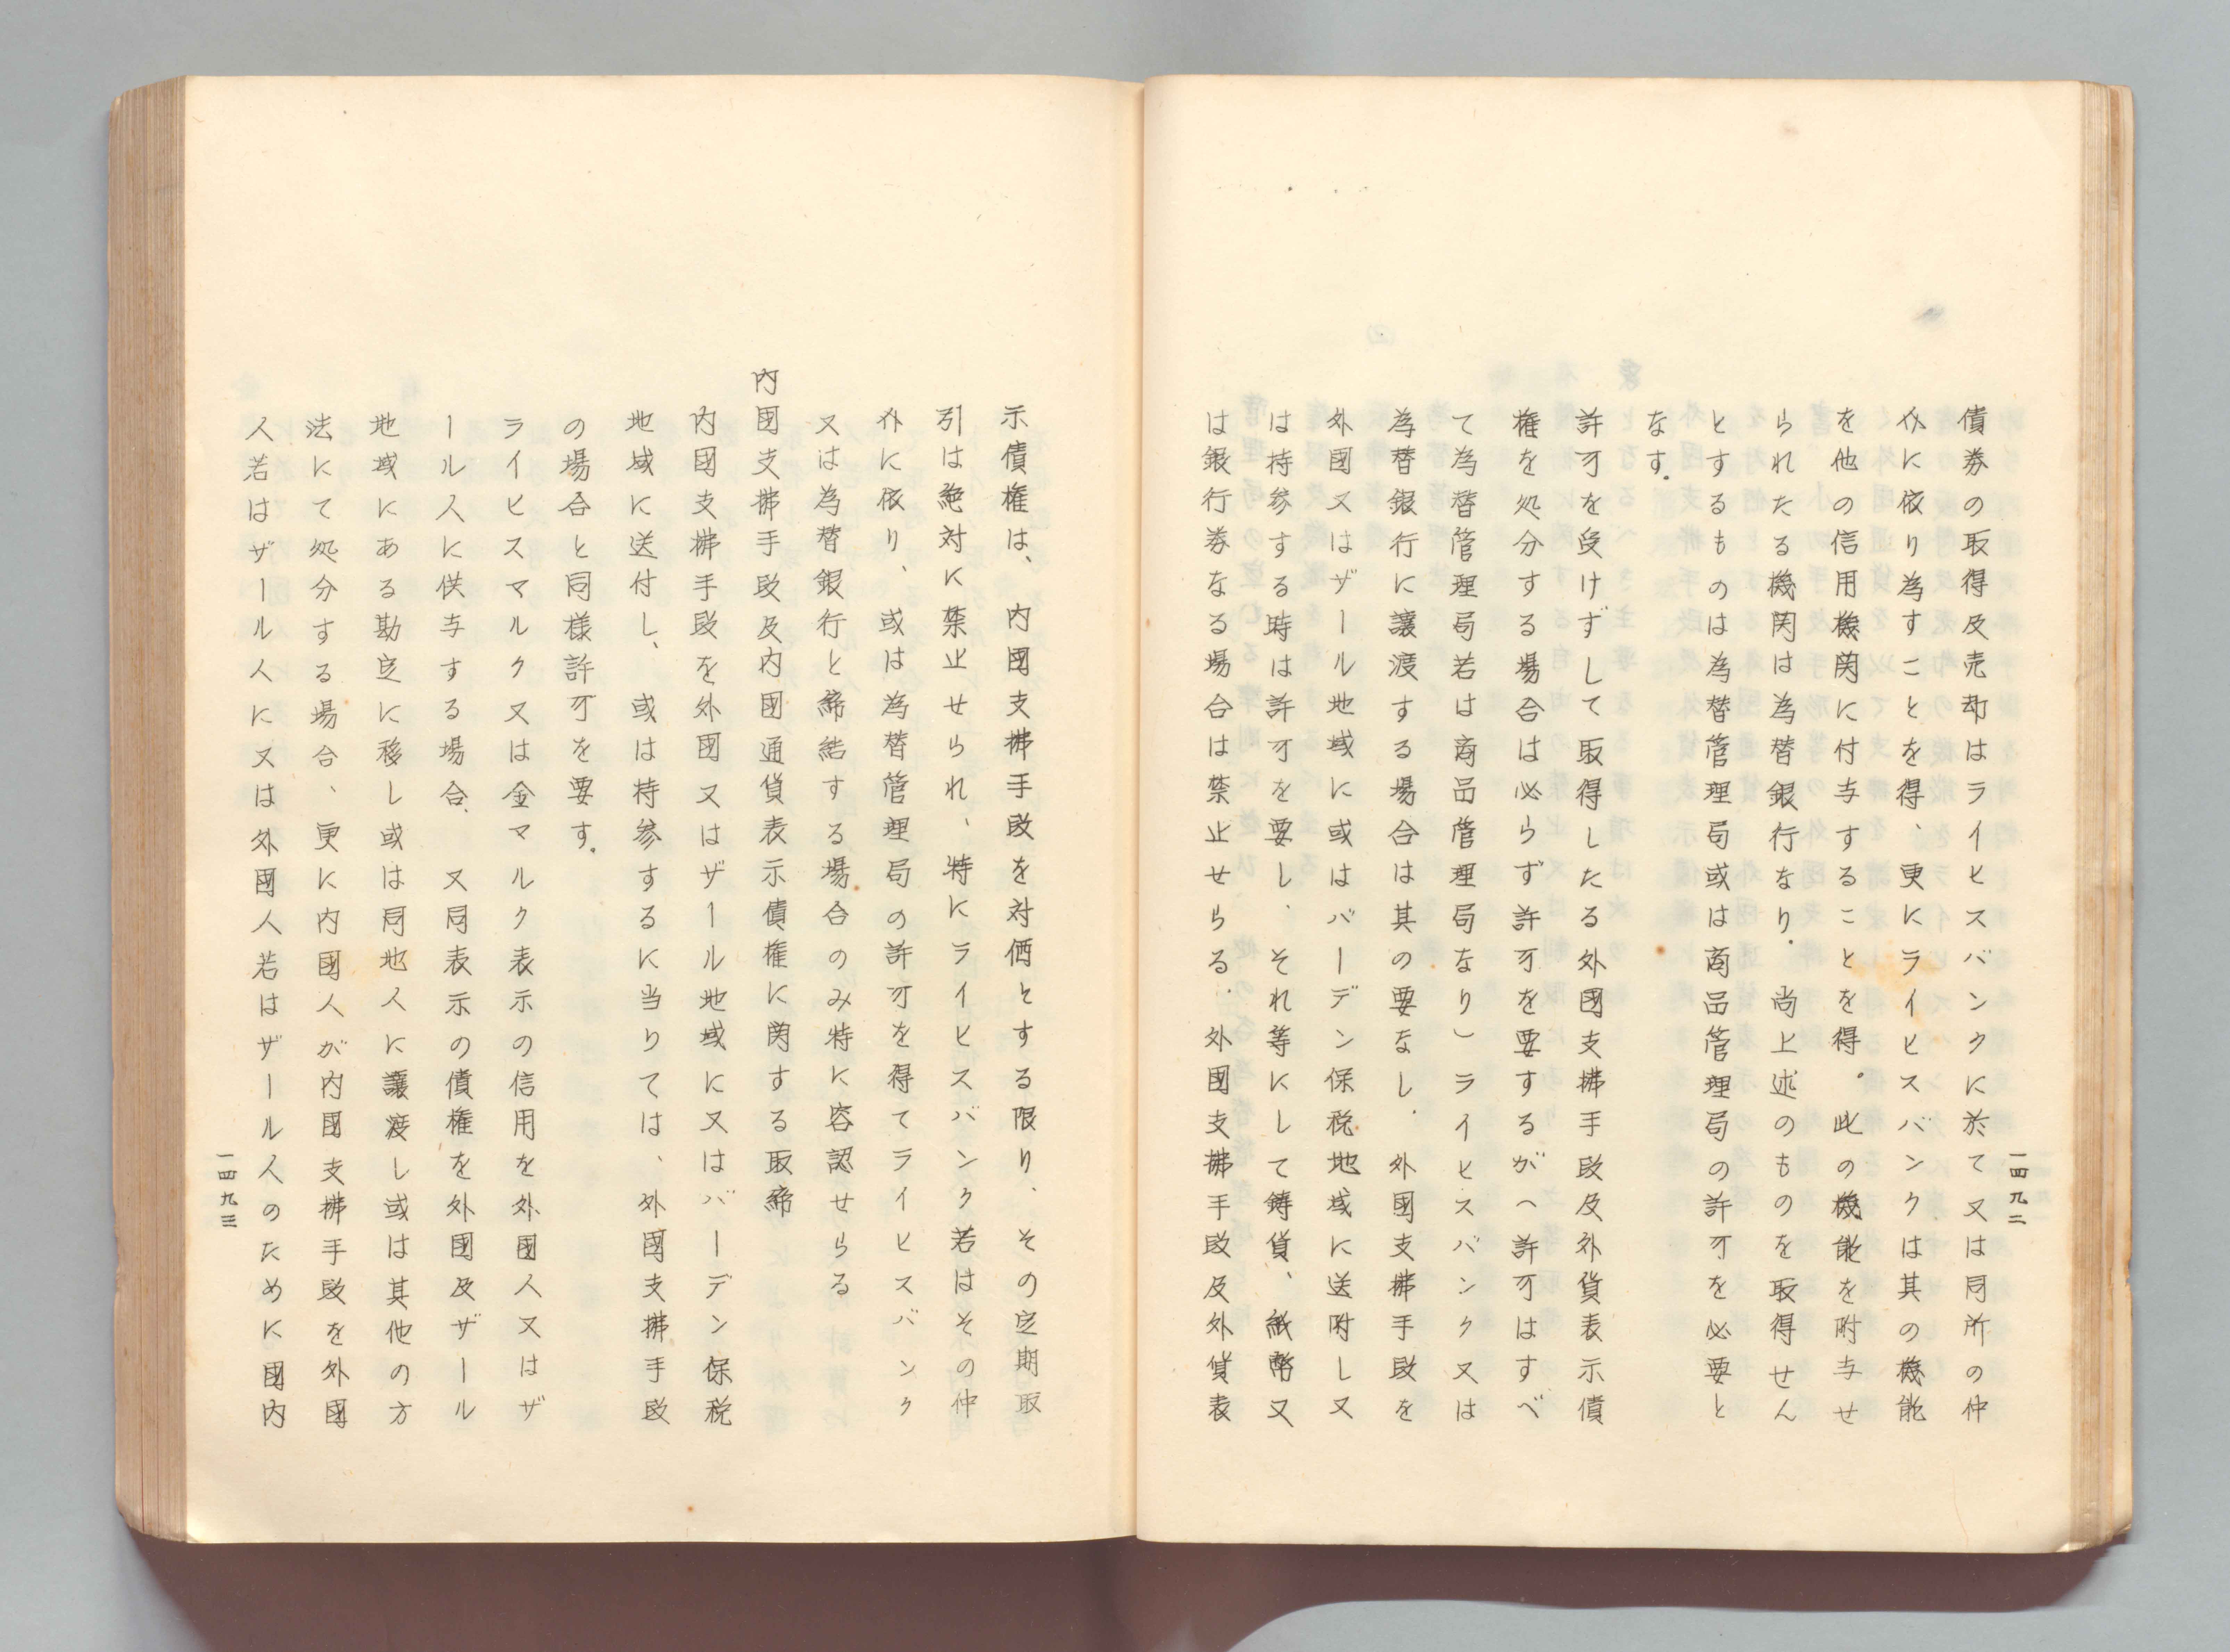 債券の取得及売却はライヒスバンクに於て又は同所の仲
介に依り為すことを得、更にライヒスバンクは其の機能
を他の信用機関に付与することを得。此の機能を附与せ
られたる機関は為替銀行なり。尚上述のものを取得せん
とするものは為替管理局或は商品管理局の許可を必要と
なす。
許可を受けずして取得したる外國支拂手段及外貨表示債
権を処分する場合は必らず許可を要するが(許可はすべ
て為替管理局若は商品管理局なり)ライヒスバンク又は
為替銀行に讓渡する場合は其の要なし。外國支拂手段を
外國又はザール地域に或はバーデン保税地域に送附し又
は持参する時は許可を要し、それ等にして鋳貨、紙幣又
は銀行券なる場合は禁止せらる。外國支拂手段及外貨表
一四九二
示債権は、内國支拂手段を対価とする限り、その定期取
引は絶対に禁止せられ、特にライヒスバンク若はその仲
介に依り、或は為替管理局の許可を得てライヒスバンク
又は為替銀行と締結する場合のみ特に容認せらる
内國支拂手段及内國通貨表示債権に関する取締
内國支拂手段を外國又はザール地域に又はバーデン保税
地域に送付し、或は持参するに当りては、外國支拂手段
の場合と同様許可を要す。
ライヒスマルク又は金マルク表示の信用を外國人又はザ
ール人に供与する場合、又同表示の債権を外國及ザール
地域にある勘定に移し或は同地人に讓渡し或は其他の方
法にて処分する場合、更に内國人が内國支拂手段を外國
人若はザール人に又は外國人若はザール人のために國内
一四九三